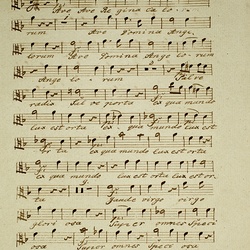 Ave Regina Cælo-
rum Ave Domina Ange,
lorum Ave Domina Ange
Ange lo rum Salve
radix Salve porta Ex qua mundo
lux est orta Ex qua mundo
Ex qua mundo lux est orta
Ex qua mundo lux est or,
ta Gaude virgo virgo
glori osa Super omnes Speci
osa Super omnes Speci osa